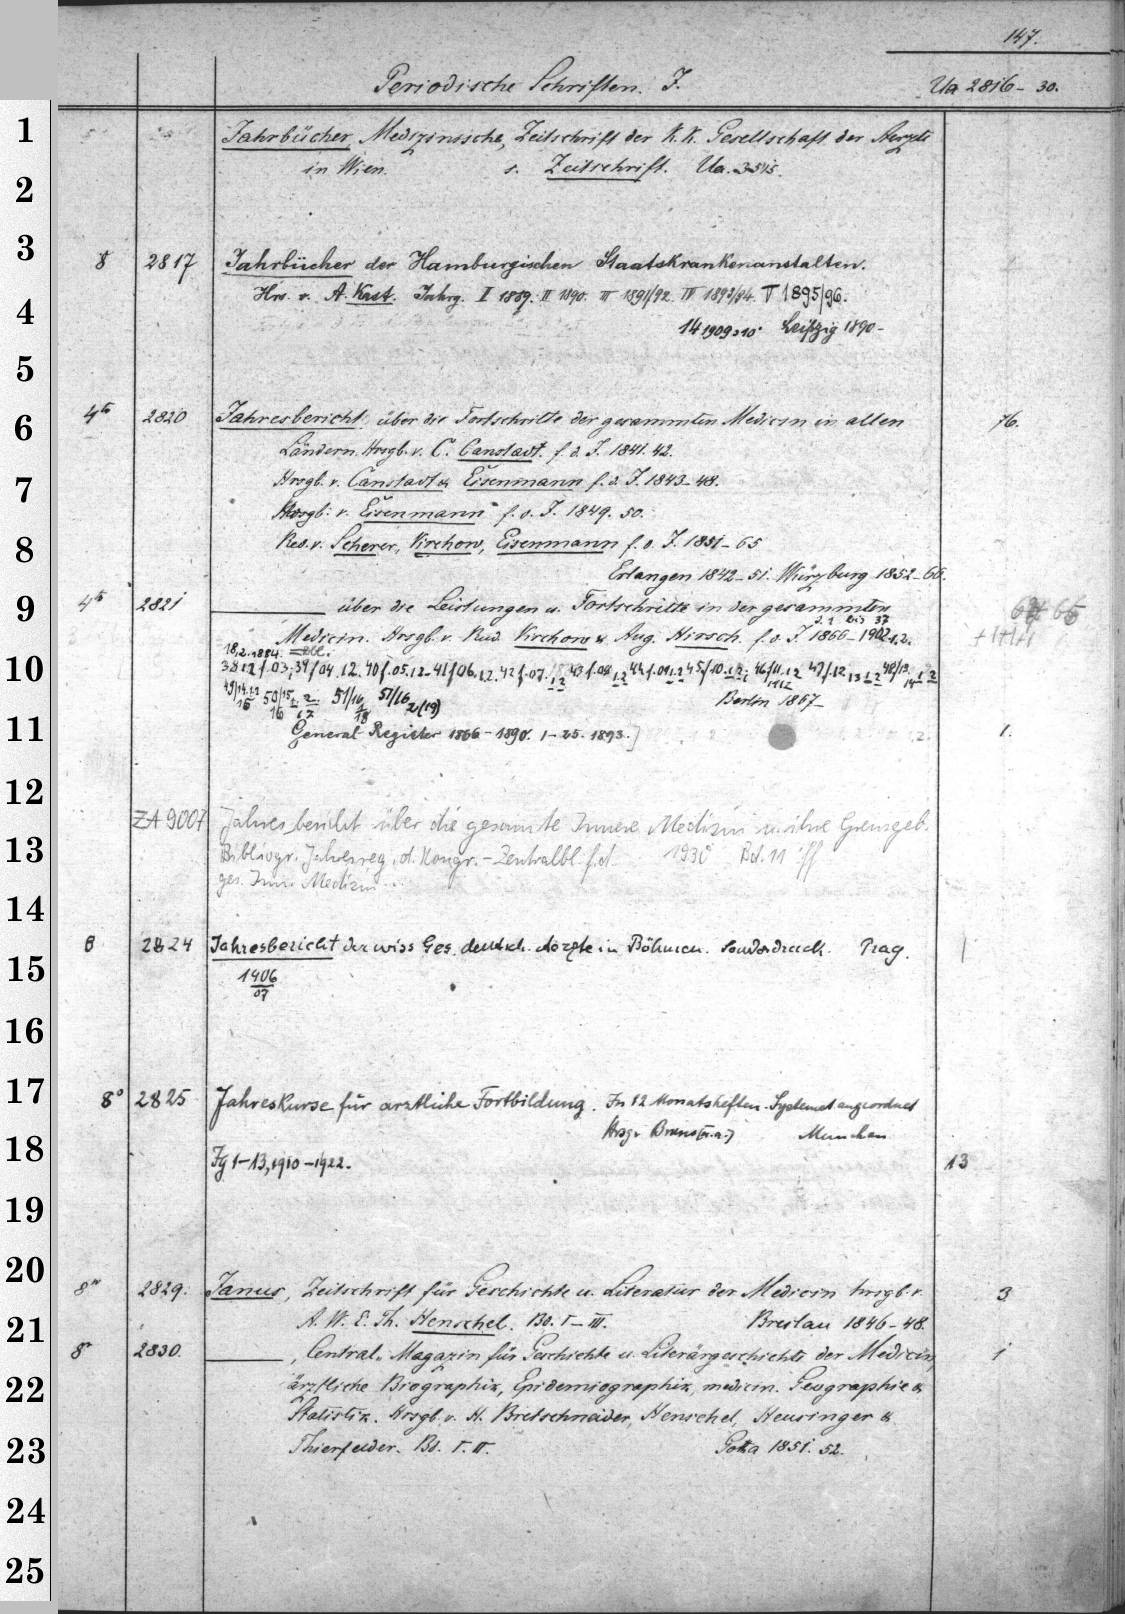 147.
Periodische Schriften. J. Ua 2816-30.
1
Jahrbücher, Medizinische, Zeitschrift der K. K. Gesellschaft der Aerzte
in Wien. s. Zeitschrift. Ua. 3515.
2
3
8 2817 Jahrbücher der Hamburgischen Staatskrankenanstalten.
Hrs. v. A. Kast. Jahrg. I 1889. II 1890. III 1891/92. IV 1893/94. V 1895/96.
4
14 1909-10 Leipzig 1890-
5
6
4to 2820 Jahresbericht über die Fortschritte der gesammten Medicin in allen 76.
Ländern. Hrsgb. v. C. Canstadt. f. d. J. 1841. 42.
7
Hrsgb. v. Canstadt & Eisenmann f. d. J. 1843-48.
Hrsgb. v. Eisenmann f. d. J. 1849. 50.
8
Red. v. Scherer, Virchow, Eisenmann f. d. J. 1851-65
Erlangen 1842-51. Würzburg 1852-66.
9
4to 2821 über die Leistungen u. Fortschritte in der gesammten 65
J. 1 bis 37
Medicin. Hrsgb. v. Rud. Virchow & Aug. Hirsch. f. d. J. 1866-1902.1.2.
18,2.1884.
10
38 1.2 f. 03; 39/04.1.2. 40 f. 05.1.2-41/06.1.2. 42 f. 07. 1.2 43 f. 08 1.2 44 f. 09 1.2 45/10 1.2; 46/11.1.2 47/12 48/13
49/14.1.2 50/15 51/16 51/16 2(19)
Berlin 1867-
11
General-Register 1866-1890. 1-25. 1893.] 1.
12
ZA 9007 Jahresbericht über die gesamte Innere Medizin u. ihre Grenzgeb.
13
Bibliogr. Jahresreg. d. Kongr.-Zentralbl. f. d. 1930 Bd. 11 ff
ges. Inn. Medizin
14
8 2824 Jahresbericht der wiss Ges. deutsch. Ärzte in Böhmen. Sonderdruck. Prag.
15
1906
07
16
17
8° 2825 Jahreskurse für ärztliche Fortbildung. In 12 Monatsheften. Systemat angeordnet
Hrsg. München
18
Jg 1-13, 1910-1922. 13
19
20
8vo 2829. Janus, Zeitschrift für Geschichte u. Literatur der Medicin hrsgb. v. 3
21
A. W. E. Th. Henschel. Bd. I-III. Breslau 1846-48.
8vo 2830. , Central-Magazin für Geschichte u. Literärgeschichte der Medicin, 1
22
ärztliche Biographik, Epidemiographik, medicin. Geographie &
Statistik. Hrsgb. v. H. Bretschneider, Henschel, Heusinger &
23
Thierfelder. Bd. I. II. Gotha 1851. 52.
24
25